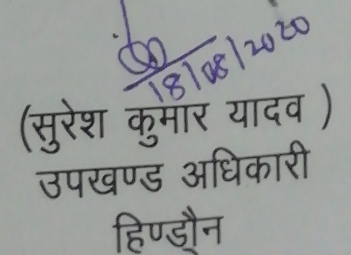 18/08/2020
(सुरेश कुमार यादव )
उपखण्ड अधिकारी
हिण्डौन